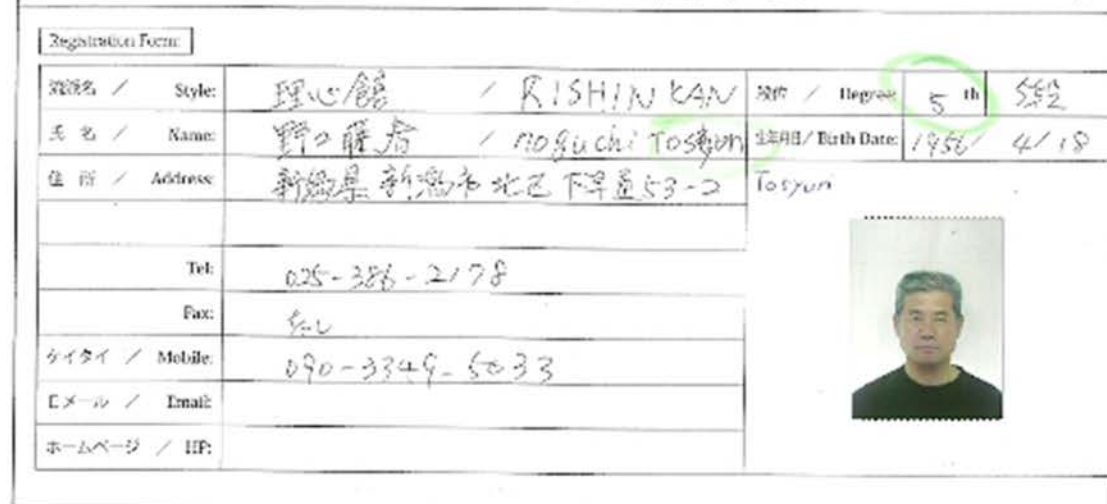 Registration Form:
流派名 / Style: 理心館 / RISHIN KAN 段位 / Degree: 5 th 5段
氏 名 / Name: 野口 / noguchi Tosyun 生年月日 / Birth Date: 1956 4/18
住 所 / Address: 新潟県 新潟市 北区 下早通53-2 Tosyun
Tel: 025-386-2178
Fax: なし
ケイタイ / Mobile: 090-3349-5033
Eメール / Email:
ホームページ / HP: